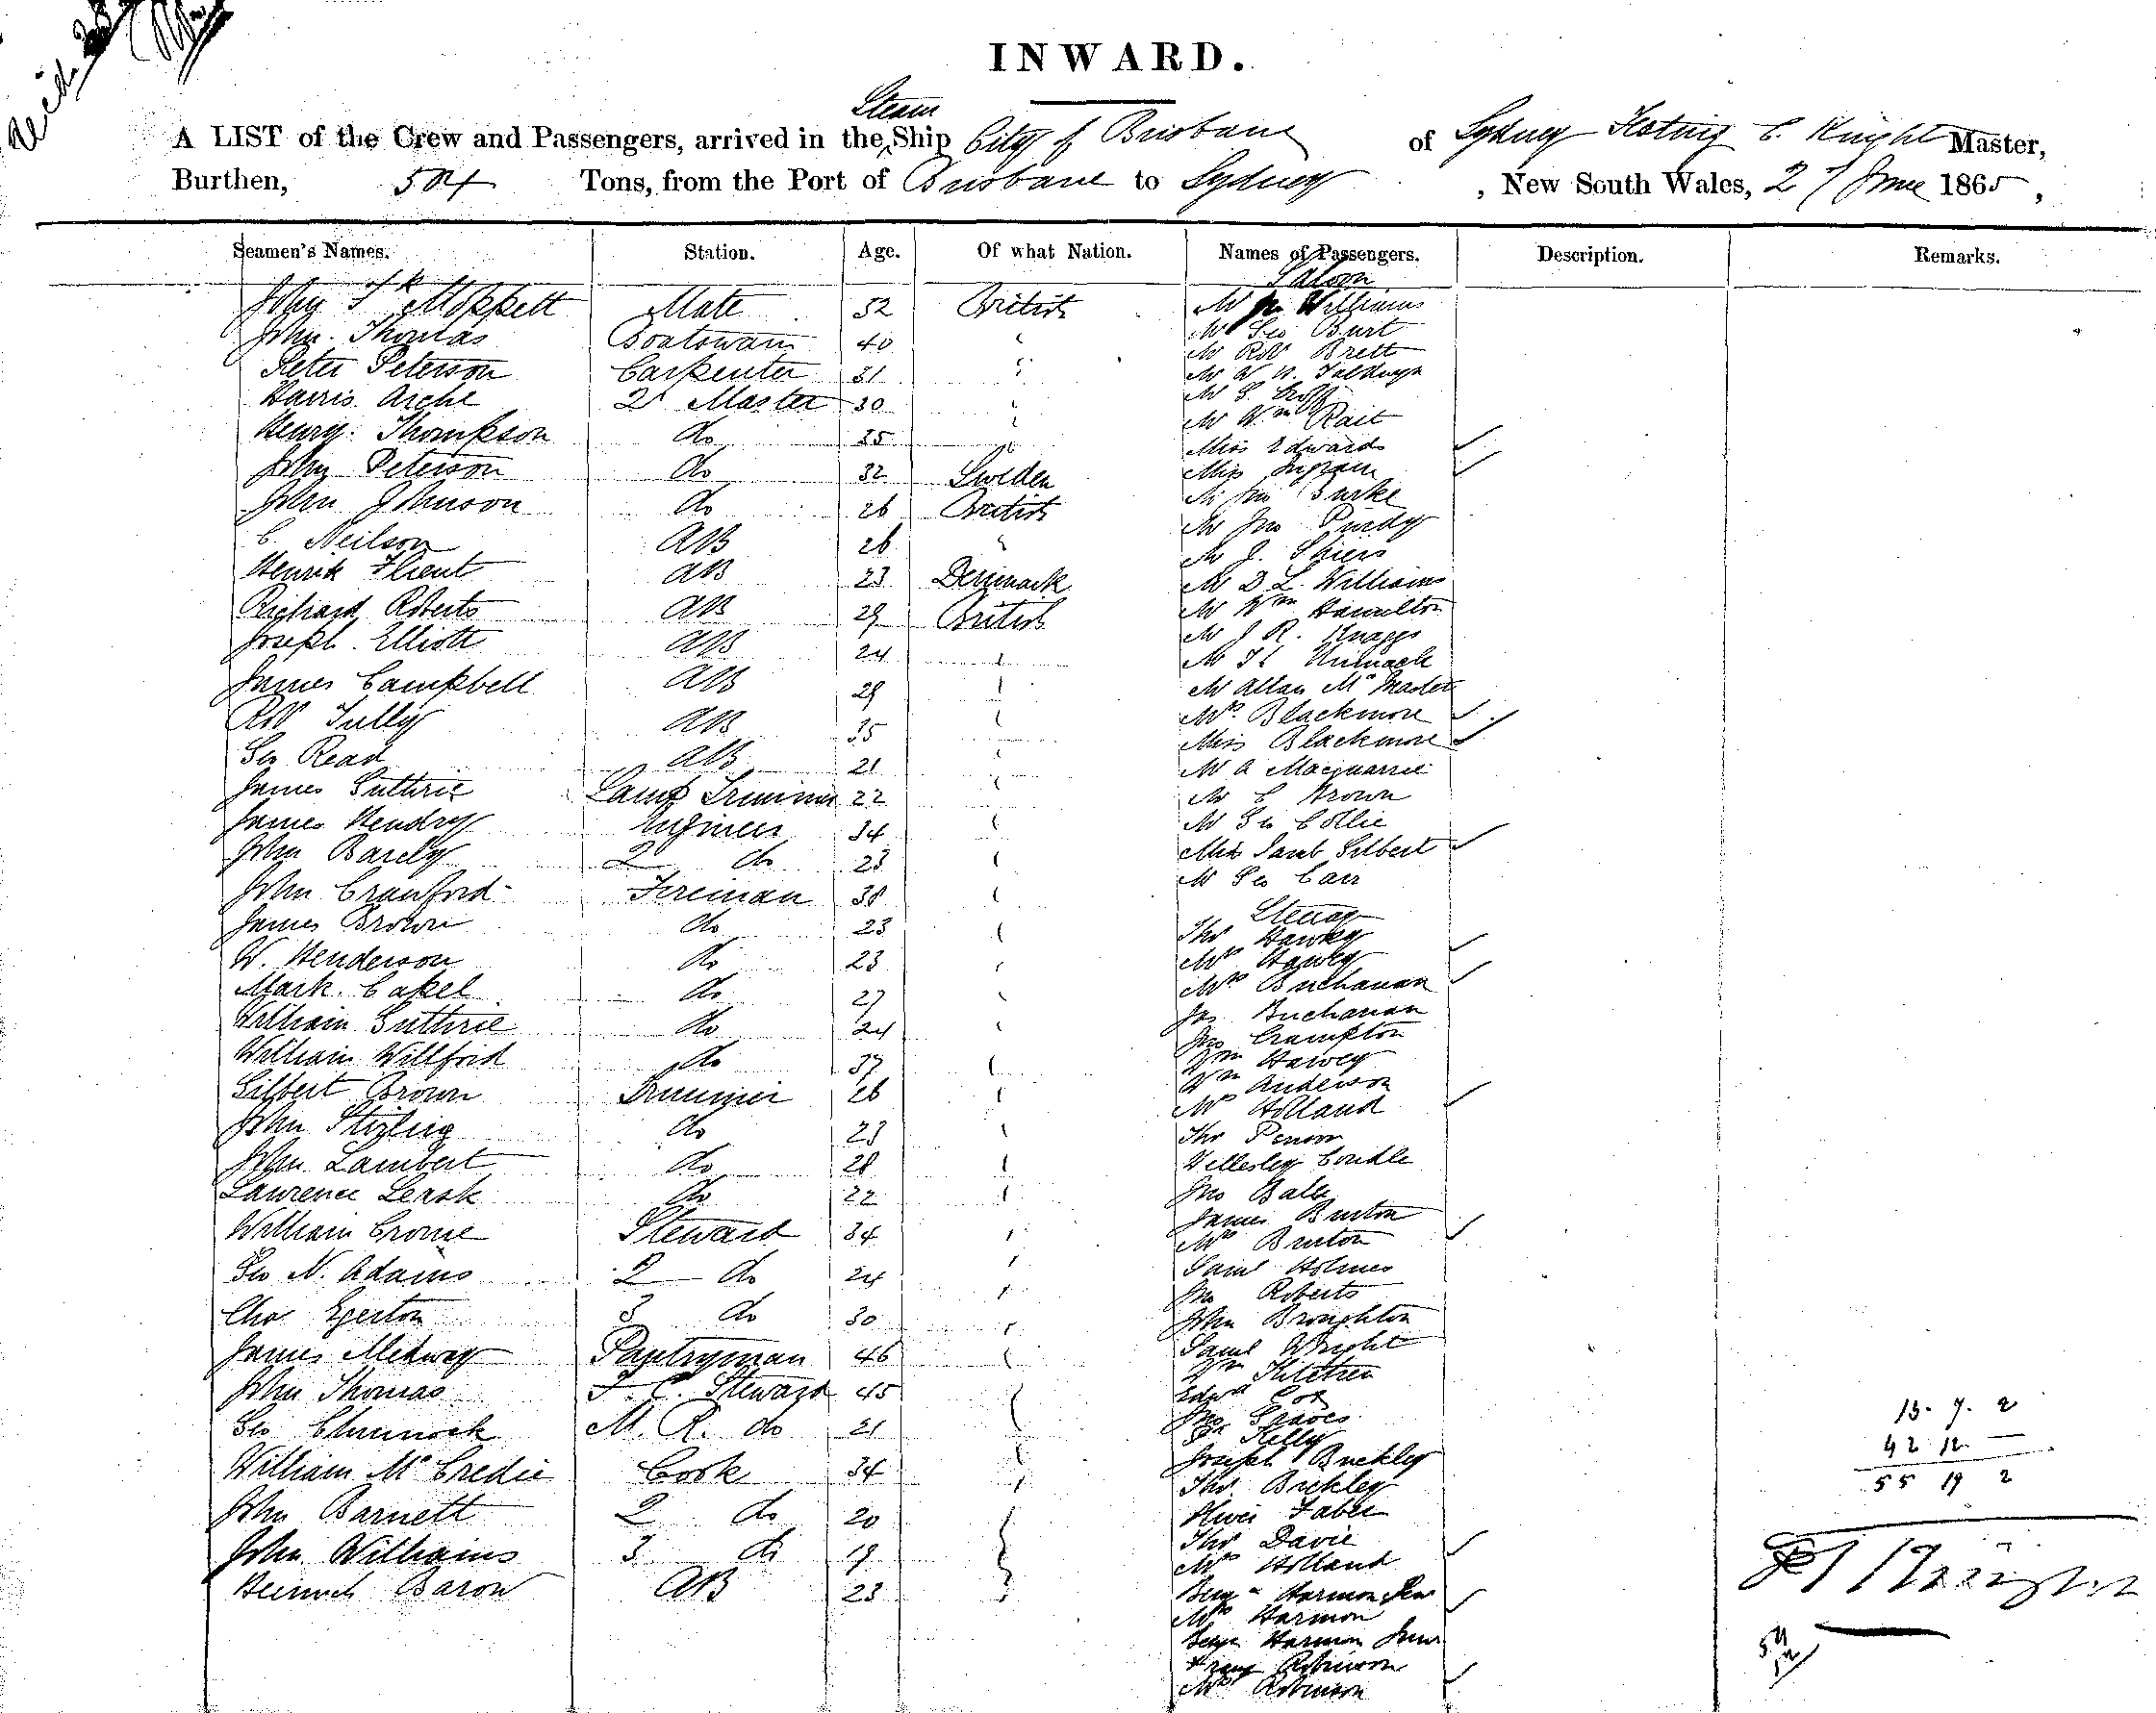 INWARD.
Steam
A LIST of the Crew and Passengers, arrived in the Ship City of Brisbane of Sydney C. Knight Master,
Burthen, 504 Tons, from the Port of Brisbane to Sydney, New South Wales, 27 June 1865,
Seamen's Names. Station. Age. Of what Nation. Names of Passengers. Description. Remarks.
Saloon
John Moppett Mate 52 British Mr Williams
John Thomas Boatswain 40 " Mr Geo Burt
Peter Peterson Carpenter 31 " Mr Robt Brett
Harris Arche 2 Master 30 " Mr
Henry Thompson do 25 " Mr Wm Rait
Miss Edwards
John Peterson do 32 Sweden Miss Ingram
John Johnson do 26 British Mr Jno Burke
C. Neilson AB 26 " Mr Jno Purdy
Mr J. Shiers
Henrik AB 23 Denmark Mr D L. Williams
Richard Roberts AB 29 British Mr Wm Hamilton
Joseph Elliott AB 24 " Mr J R. Knaggs
James Campbell AB 29 " Mr
Mr Allan McMaster
Robt Tully AB 35 " Mrs Blackmore
Miss Blackmore
Geo Read AB 21 " Mr A Macquarrie
James Guthrie Lamp Trimmer 22 " Mr C Brown
James Hendry Engineer 34 " Mr Geo Collie
John Barely 2 do 23 " Gilbert
John Crawford Fireman 38 " Mr Geo Carr
Steerage
James Brown do 23 " Thos Hawley
W. Henderson do 23 " Mrs Hawley
Mark Cakel do 27 " Mrs Buchanan
William Guthrie do 24 " Jas Buchanan
Jno Crampton
William Willford do 37 " Wm Harvey
Gilbert Brown Trimmer 26 " Wm Anderson
Mrs Holland
John Stirling do 23 " Thos
John Lambert do 28 " Wellesley Condle
Lawrence Leask do 22 " Jno Ball
James Burton
William Crome Steward 34 " Mrs Burton
Geo N. Adams 2 do 24 " Saml Holmes
Jno Roberts
Chas Egerton 3 do 30 " John Broughton
James Medway Pantryman 46 " Saml Wright
Wm Kitchen
John Thomas F. C. Steward 45 " Edwd Cox
Geo Chinnock M. R. do 21 " Jno Graves
Kelly
William McCredie Cook 34 " Joseph Buckley
Thos Bickley
John Barnett 2 do 20 " Oliver Faber
John Williams 3 do 19 " Thos Davie
Mrs Holland
Heinrich Baron AB 23 " Benj Harmon Senr
Mrs Harmon
Benjn Harmon Junr
Robinson
Mrs Robinson
13. 7. 2
42 12 —
55 19 2